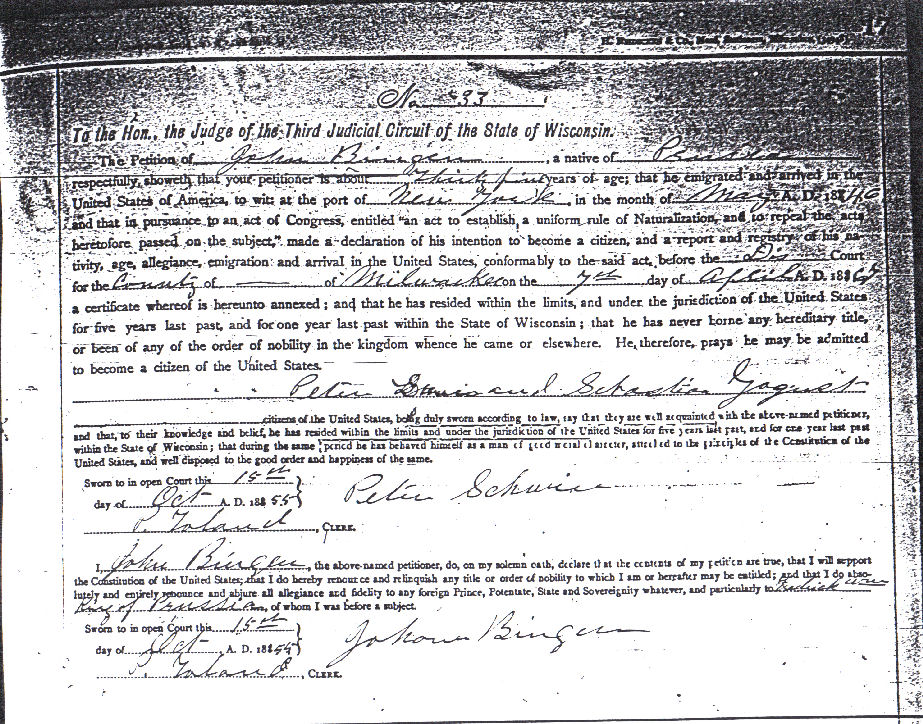 17
No 33
To the Hon., the Judge of the Third Judicial Circuit of the State of Wisconsin.
The Petition of John Bingen, a native of Prussia
respectfully, showeth that your petitioner is about Thirty five years of age; that he emigrated and arrived in the
United States of America, to wit: at the port of New York, in the month of May A. D. 18846
and that in pursuance to an act of Congress, entitled "an act to establish a uniform rule of Naturalization, and to repeal the acts
heretofore passed on the subject," made a declaration of his intention to become a citizen, and a report and registry of his na-
tivity, age, allegiance, emigration and arrival in the United States, conformably to the said act, before the Dis Court
for the County of — of Milwaukee on the 7th day of April A. D. 188
a certificate whereof is hereunto annexed; and that he has resided within the limits, and under the jurisdiction of the United States
for five years last past, and for one year last past within the State of Wisconsin; that he has never borne any hereditary title,
or been of any of the order of nobility in the kingdom whence he came or elsewhere. He, therefore, prays he may be admitted
to become a citizen of the United States.
Peter and Sebastian
citizens of the United States, being duly sworn according to law, say that they are well acquainted with the above-named petitioner,
and that, to their knowledge and belief, he has resided within the limits and under the jurisdiction of the United States for five years last past, and for one year last past
within the State of Wisconsin; that during the same period he has behaved himself as a man of good moral character, attached to the principles of the Constitution of the
United States, and well disposed to the good order and happiness of the same.
Sworn to in open Court this 15th
day of Oct A. D. 188 55
Peter
P. Toland, CLERK.
I, John Bingen, the above-named petitioner, do, on my solemn oath, declare that the contents of my petition are true, that I will support
the Constitution of the United States; that I do hereby renounce and relinquish any title or order of nobility to which I am or hereafter may be entitled; and that I do abso-
lutely and entirely renounce and abjure all allegiance and fidelity to any foreign Prince, Potentate, State and Sovereignity whatever, and particularly to
King of Prussia, of whom I was before a subject.
Sworn to in open Court this 15th
day of Oct A. D. 188 55
Bingen
P. Toland, CLERK.